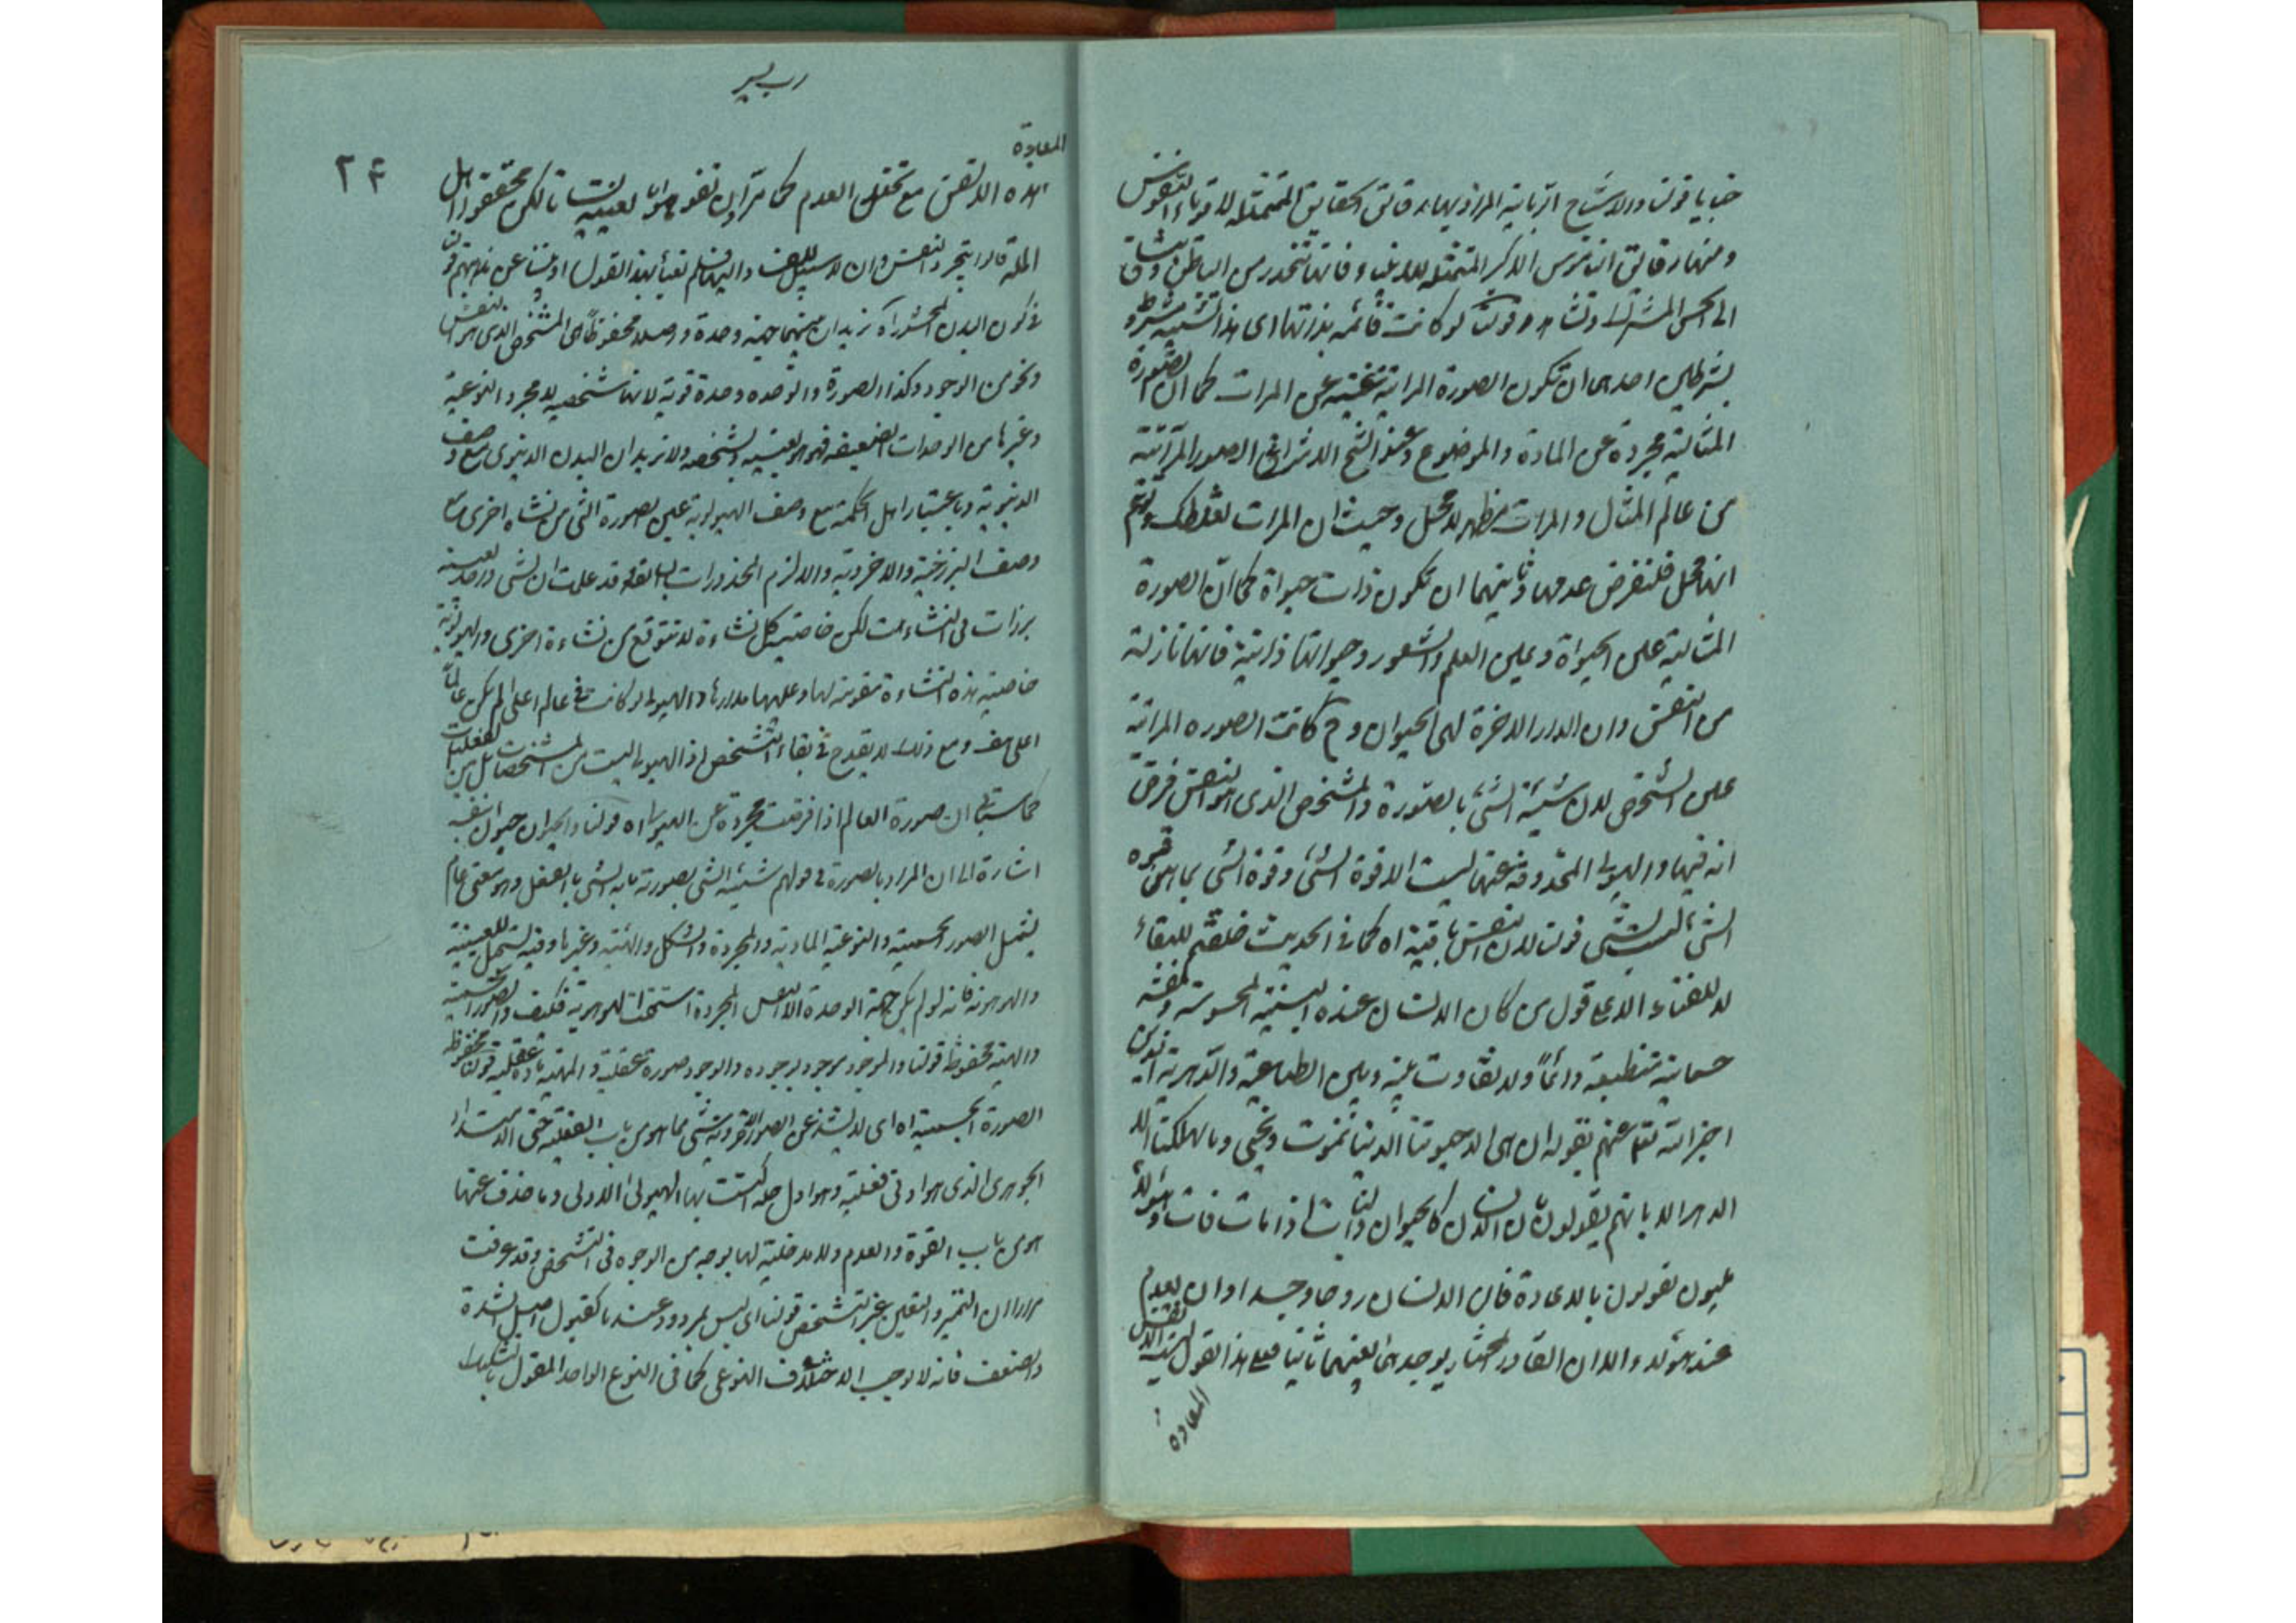 خبايا قولنا والاشباح الربانية المراد بها رقائق الحقايق المتمثلة للاقوياء النفوس
ومنها رقائق الذكر المتمثلة للانبياء فانها تنحدر من الباطن
الى الحس المشترك وتشاهد قولنا لو كانت قائمة بذاتها اى هذا التشبيه مشروط
بشرطين احدهما ان تكون الصورة المراتية غنية عن المرات كما ان الصورة
المثالية مجردة عن المادة والموضوع وعند الشيخ الاشراقى الصور المرآتية
من عالم المثال والمرات مظهر لا محل وحيث ان المرات تغلطك وتوهم
انها محل فلنفرض عدمها وثانيهما ان تكون ذات حيواة كما ان الصورة
المثالية عين الحيواة وعين العلم والشعور وحيواتها ذاتية فانها نازلة
من النفس وان الدار الاخرة لهى الحيوان وح كانت الصوره المراتية
عين الشخص لان شيئية الشئ بالصورة والمشخص الذى هو النفس فرض
انه فيها والهيولى المحذوفة عنها ليست الا قوة الشئ وقوة الشئ بما هى قوة
الشئ ليست بشئ قولنا لان النفس باقية اه كما فى الحديث خلقتم للبقاء
لا للفناء الا على قول من كان الانسان عنده البنية المحسوسة ونفسه
جسمانية منطبعة دائما ولا تفاوت بينه وبين الطباعية والدهرية الذين
اخبر الله تعالى عنهم بقوله ان هى الا حيوتنا الدنيا نموت ونحيى وما يهلكنا الا
الدهر الا بانهم يقولون ان الانسان كالحيوان والنبات اذا مات فات وهؤلاء
المليون يقولون بالاعادة فان الانسان روحا وجسدا وان يعدم
عند هؤلاء الا ان القادر المختار يوجدهما بعينهما ثانيا فعلى هذا القول ليست الانفس
المعادة
رب يسر
المعادة
٢٤
هذه الانفس مع تخلل العدم كما ترى ان تفوهوا بالعينية لكن محققوا اهل
الملة قالوا بتجرد النفس وان لا سبيل للفناء اليها فلم نعبأ بهذا القول او بنينا عن مذهبهم قولنا
فى كون البدن المحشور اه نريد ان بينهما جهة وحدة واصلا محفوظا هى المشخص الذى هو النفس
ونحو من الوجود وكذا الصورة والوحده وحدة قوية لانها شخصية لا مجرد النوعية
وغيرها من الوحدات الضعيفة فهو هو بعينه وشخصه ولا نريد ان البدن الدنيوى مع وصف
الدنيوية وباعتبار اهل الحكمة مع وصف الهيولوية عين الصورة التى من نشاه اخرى مع
وصف البرزخية والاخروية والا لزم المحذورات السابقة قد علمت ان لشئ واحد بعينه
برزات فى النشاءت لكن خاصية كل نشاءة لا تتوقع من نشاءة اخرى والهيولوية
خاصية هذه النشاءة مقومة لها وعليها مدارها والهيولى لو كانت فى عالم اعلى لم يكن عالما
اعلى هف ومع ذلك لا يقدح فى بقاء التشخص اذ الهيولى ليست من المشخصات بل من القابليات
كما سيأتى ان صورة العالم اذا فرضت مجردة عن الهيولى اه قولنا والحيوان حيوان بنفسه
اشارة الى ان المراد بالصورة فى قولهم شيئية الشئ بصورته ما به الشئ بالفعل وهو معنى عام
يشمل الصور الجسمية والنوعية المادية والمجردة والشكل والهيئة وغيرها وفيه يشمل للعينية
والهوهوية فانه لو لم يكن جهة الوحدة الا النفس المجردة استحقت الهوهوية فكيف والصورة الجسمية
والهيئة محفوظة قولنا والموجود موجود بوجوده والوجود صورة عقلية والمهية مادة عقلية قولنا محفوظة
الصورة الجسمية اه اى لا يشذ عن الصور الاخروية شئ مما هو من باب الفعلية حتى الامتداد
الجوهرى الذى هو ادنى فعلية وهو اول حلة اكتست بها الهيولى الاولى وما حذف عنها
هو من باب القوة والعدم ولا مدخلية لها بوجه من الوجوه فى التشخص وقد عرفت
مرارا ان التميز والتعين غير التشخص قولنا اى ليس لمردود عند ما كقبول اصل الشدة
والضعف فانه لا يوجب الاختلاف النوعى كما فى النوع الواحد المقول بالتشكيك